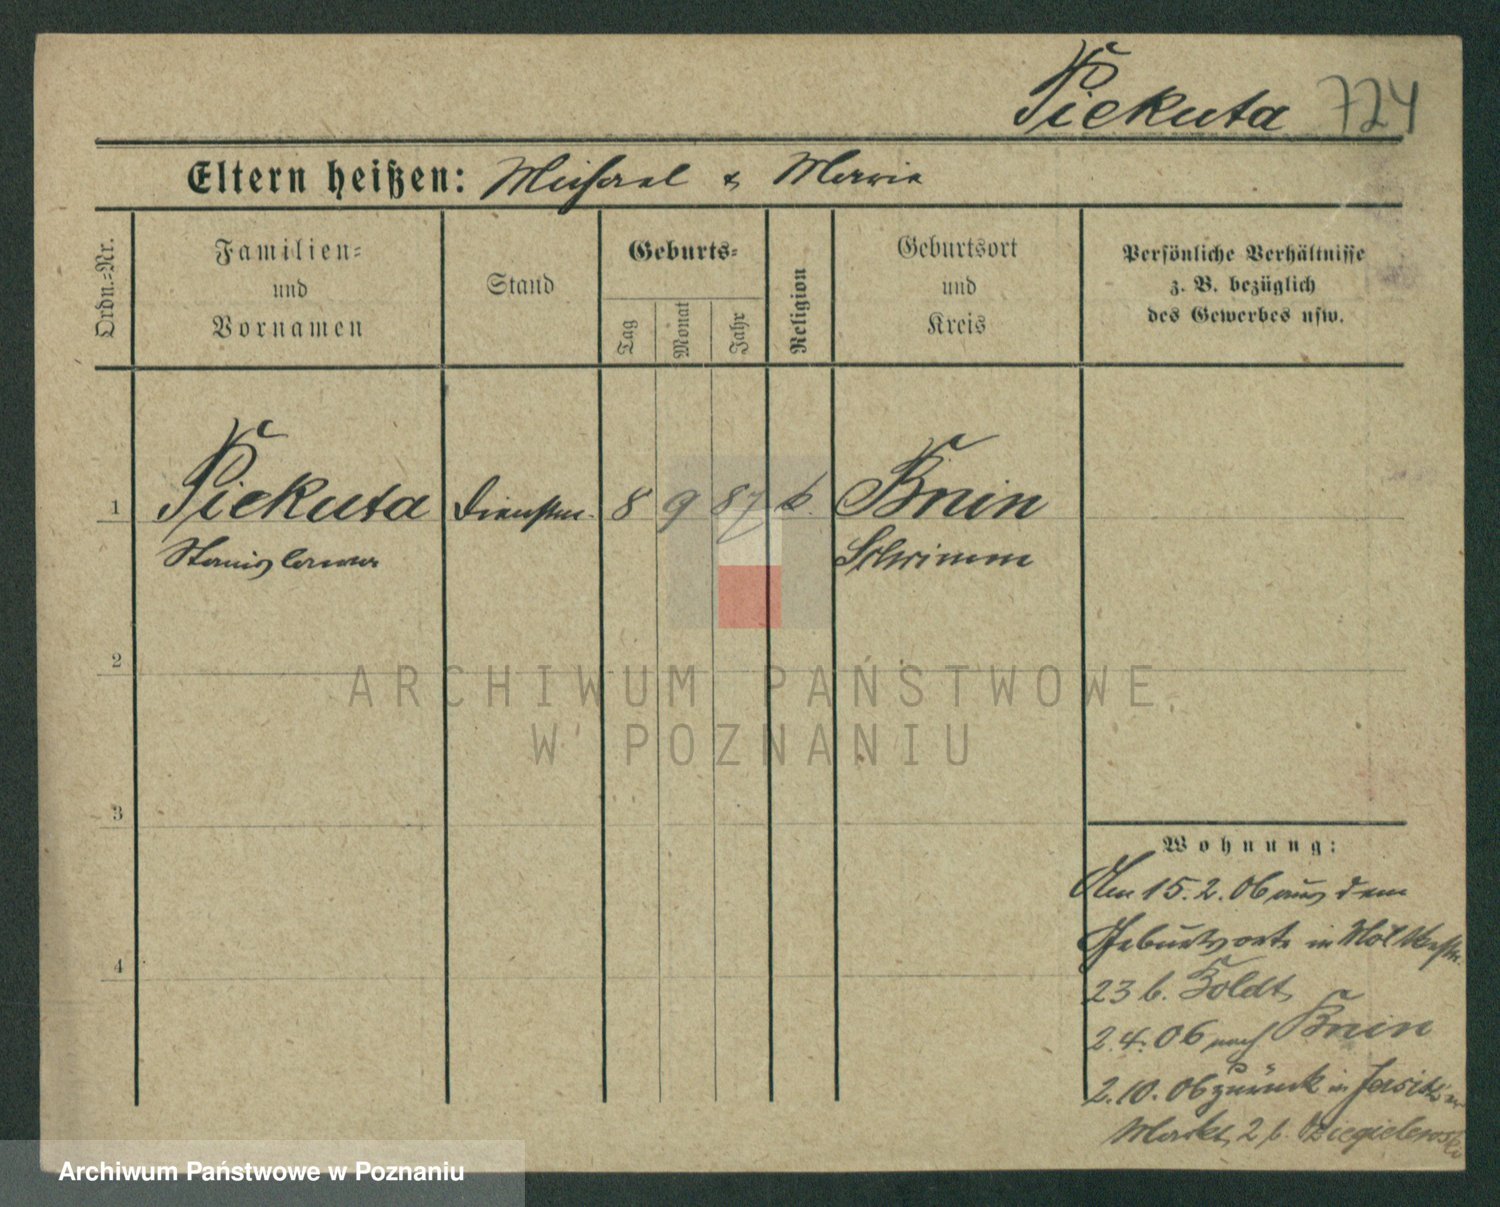 Piekuta 724
Eltern heißen: Michael & Marie
Ordn.=Nr.
Familien=
und
Vornamen
Stand
Geburts=
Tag
Monat
Jahr
Religion
Geburtsort
und
Kreis
Persönliche Verhältnisse
z. B. bezüglich
des Gewerbes usw.
1 Piekuta Dienstm. 8 9 87 k. Bnin
Stanislawa Schrimm
2
3
4
ARCHIWUM PAŃSTWOWE
W POZNANIU
Wohnung:
Am 15.2.06 aus dem
Geburtsorte in
23 b. Boldt
2.4.06 nach Bnin
2.10.06 zurück in Jersitzer
Markt 2 b. Dziegielewski
Archiwum Państwowe w Poznaniu